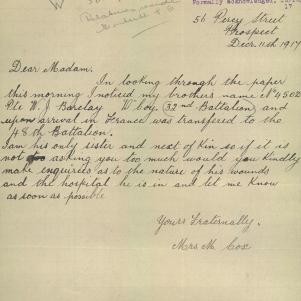 W
Formally acknowledged.
17
56 Percy Street
Prospect
Decr. 11th 1917
Dear Madam.
In looking through the paper
this morning I noticed my brothers name No 4502
Pte W. J. Barclay W Coy. 32nd Battalion, and
upon arrival in France was transfered to the
48th Battalion.
I am his only sister and next of Kin so if it is
not too asking you too much would you Kindly
make enquiries as to the nature of his wounds
and the hospital he is in and let me Know
as soon as possible
Yours Fraternally,
Mrs M. Cox